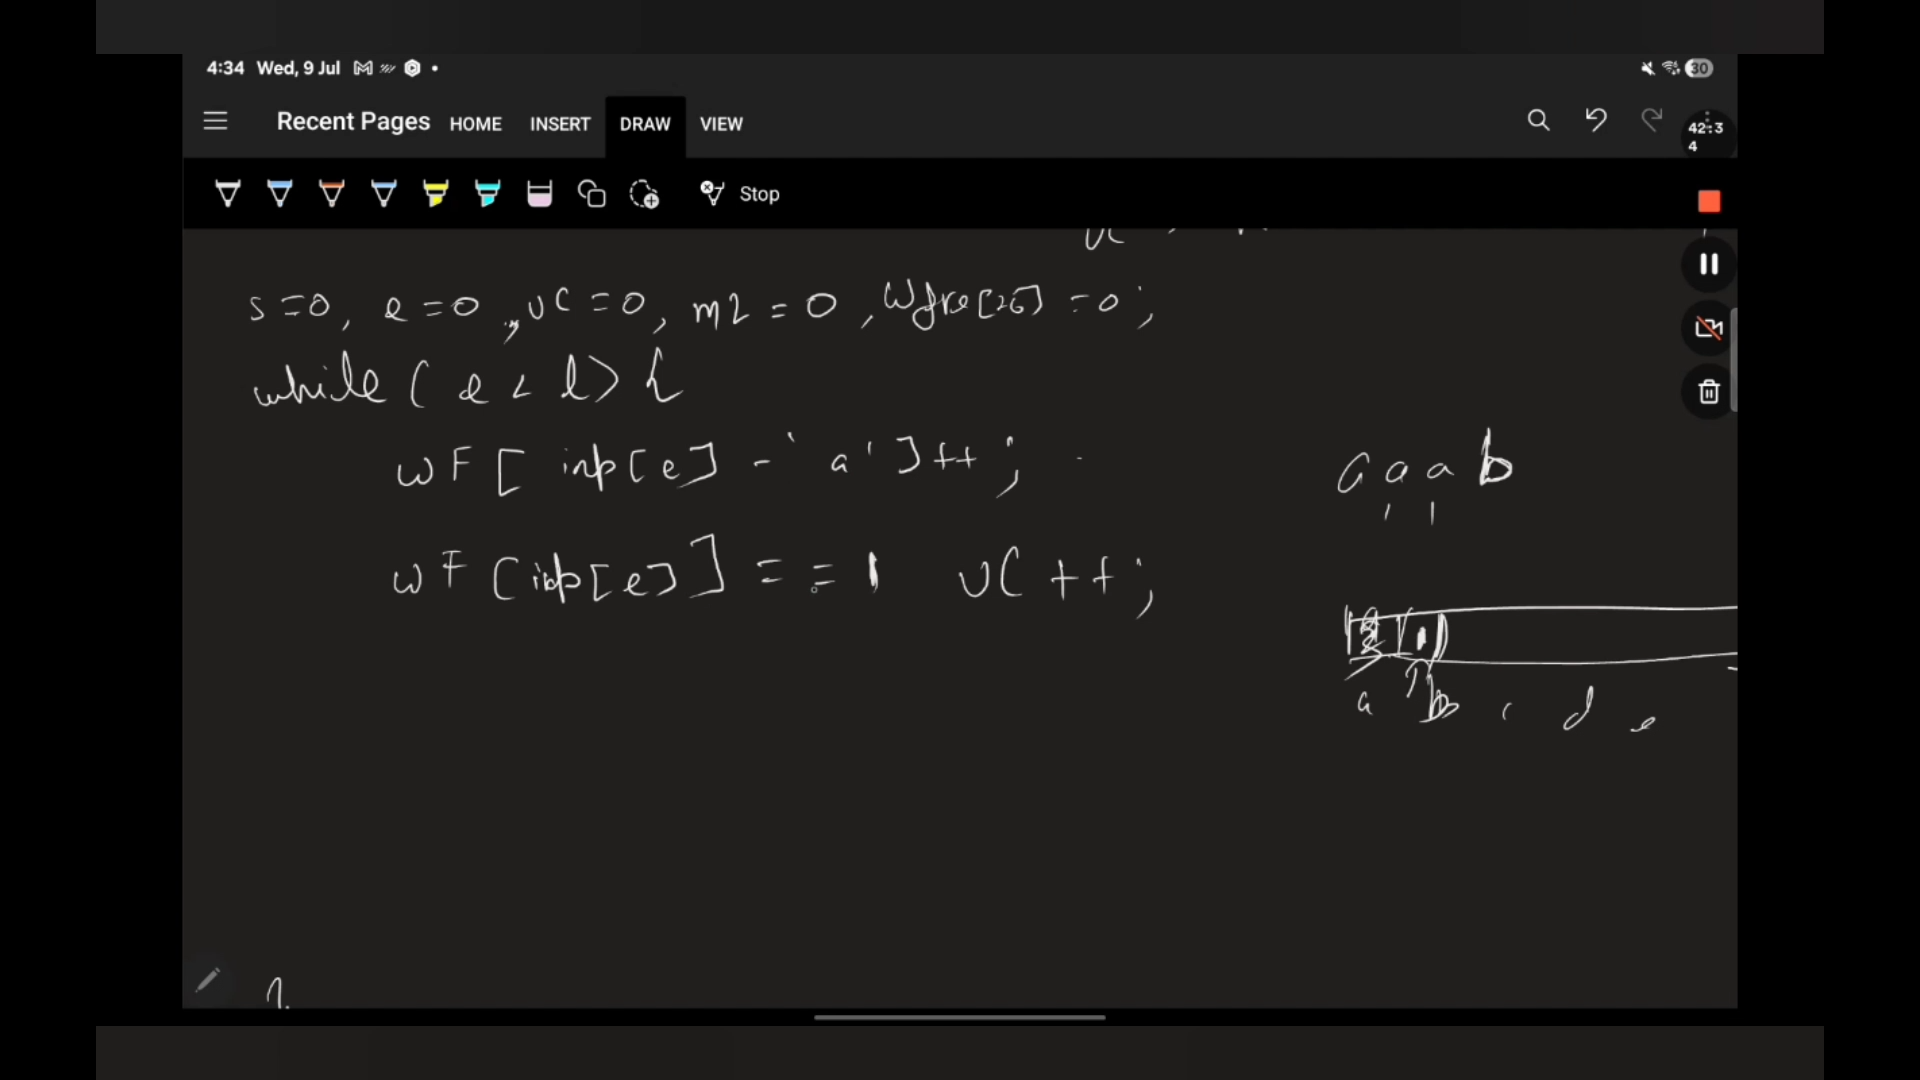 4:34 Wed, 9 Jul 30
Recent Pages HOME INSERT DRAW VIEW
42:3
4
Stop
UC
s=0, e=0, UC=0, mL=0, Wfre[26]=0;
while(e<l){
WF[inp[e]-'a']++;
a a a b
WF[inp[e]]==1 UC++;
1
a b c d e